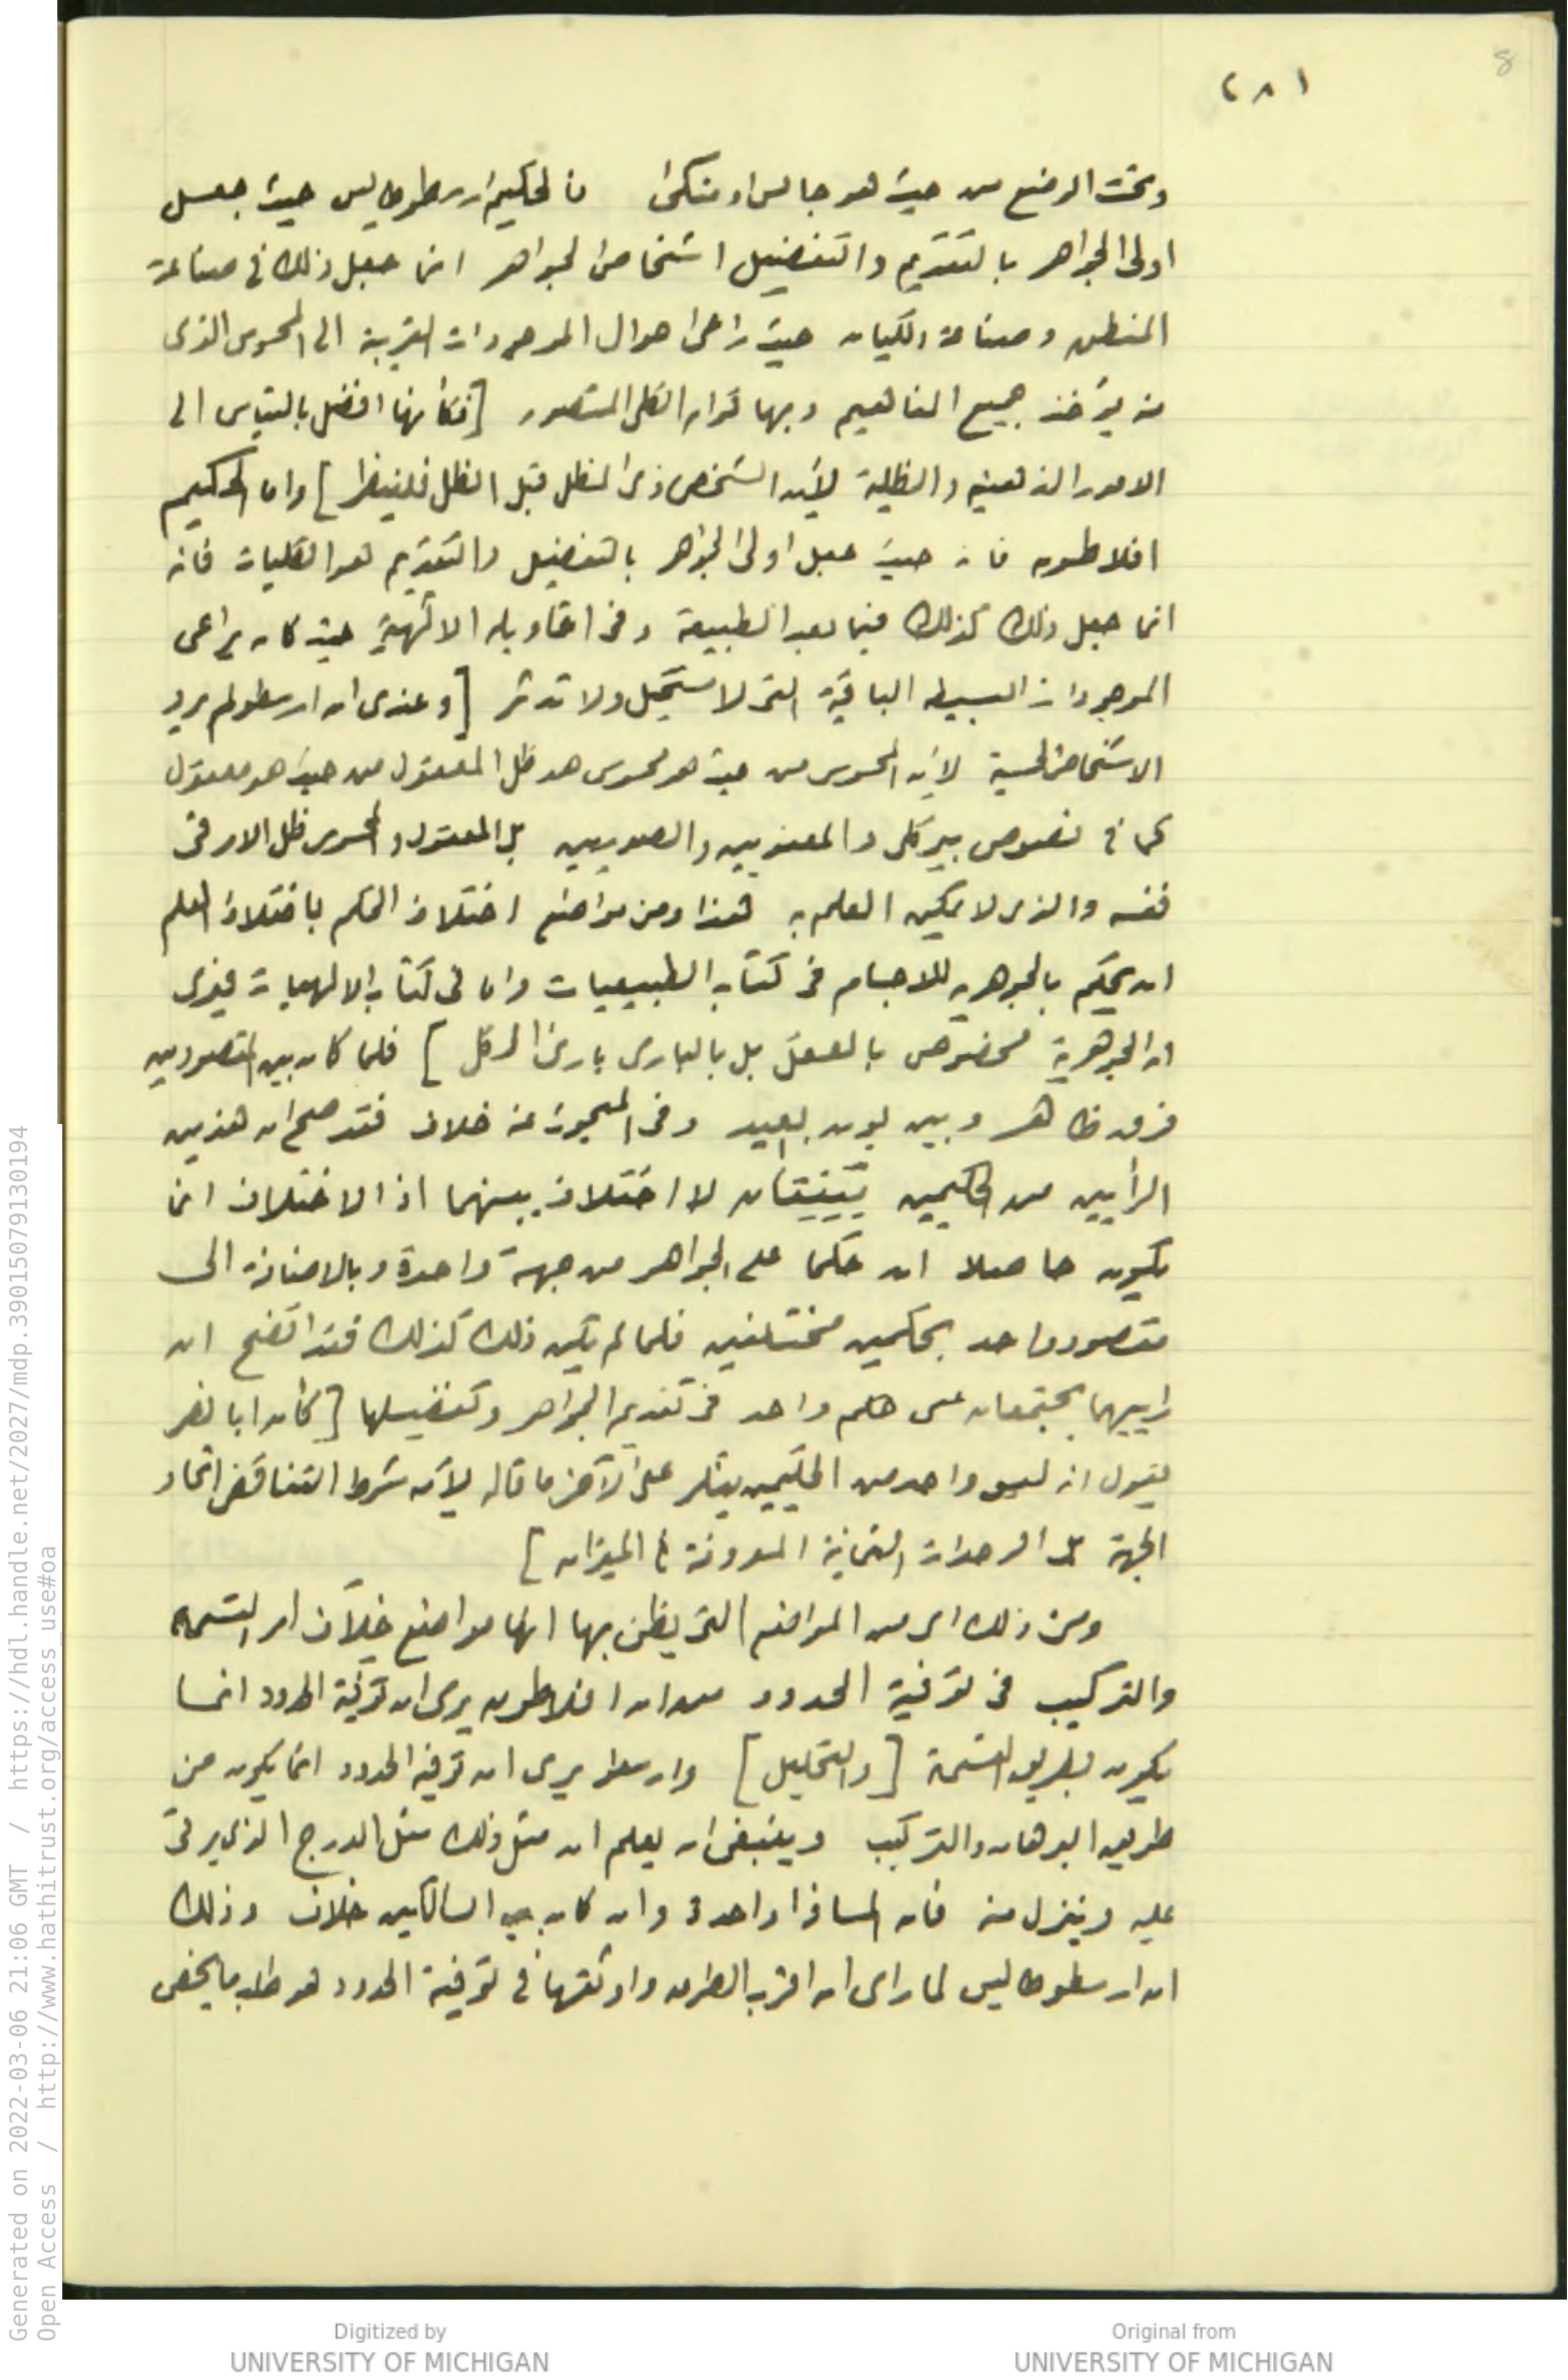 (٨١
8
وتحت الوضع من حيث هو جالس او متكئ فالحكيم ارسطوطاليس حيث جعل
اولى الجواهر بالتقديم والتفضيل اشخاص الجواهر انما جعل ذلك في صناعة
المنطق وصناعة الكيان حيث راعى احوال الموجودات القريبة الى المحسوس الذى
منه يؤخذ جميع المفاهيم وبها قوام الكلى المتصور [فكأنها افضل بالقياس الى
الامور الذهنية والظلية لأن الشخص ذى الظل قبل الظل فلينظر] واما الحكيم
افلاطون فانه حيث جعل اولى الجواهر بالتفضيل والتقديم هو الكليات فانه
انما جعل ذلك كذلك فيما بعد الطبيعة وفى اقاويله الالٰهية حيث كان يراعى
الموجودات البسيطه الباقية التى لا تستحيل ولا تدثر [وعندى ان ارسطو لم يرد
الاشخاص الحسية لأن المحسوس من حيث هو محسوس هو ظل المعقول من حيث هو معقول
كما فى نصوص والمعنويين والصوريين بل المعقول والمحسوس ظل الارفى
نفسه والذى لا يمكن العلم به هذا ومن مواضع اختلاف الحكم باختلاف العلم
ان يحكم بالجوهريه للاجسام فى كتاب الطبيعيات واما فى كتاب الالهيات فيرى
ان الجوهرية مخصوص بالعقل بل بالبارى بارئ الكل] فلما كان بين المقصودين
فرق ظاهر وبين بون بعيد وفى المبحوث عنه خلاف فقد صح ان هذين
الرأيين من الحكيمين يتفقان لا اختلاف بينهما اذ الاختلاف انما
يكون حاصلا ان حكما على الجواهر من جهة واحدة وبالاضافة الى
مقصود واحد بحكمين مختلفين فلما لم يكن ذلك كذلك فقد اتضح ان
راييهما يجتمعان على حكم واحد فى تقديم الجواهر وتفضيلها [كأن ابا نصر
يقول انه ليس واحد من الحكيمين ينكر على الآخر ما قاله لأن شرط التناقض اتحاد
الجهة بل الوحدات الثمانية المعروفة فى الميزان]
ومن ذلك اى من المواضع التى يظن بها انها مواضع خلاف امر القسمه
والتركيب فى توفية الحدود من ان افلاطون يرى ان توفية الحدود انما
يكون بطريق القسمة [والتحليل] وارسطو يرى ان توفية الحدود انما يكون من
طريق البرهان والتركيب وينبغى ان يعلم ان مثل ذلك مثل الدرج الذى يرقى
عليه وينزل منه فان المسافة واحدة وان كان بين السالكين خلاف وذلك
ان ارسطوطاليس لما راى ان اقرب الطرق واوثقها فى توفية الحدود هو طلب ما يخص
Generated on 2022-03-06 21:06 GMT / https://hdl.handle.net/2027/mdp.39015079130194
Open Access / http://www.hathitrust.org/access_use#oa
Digitized by
UNIVERSITY OF MICHIGAN
Original from
UNIVERSITY OF MICHIGAN